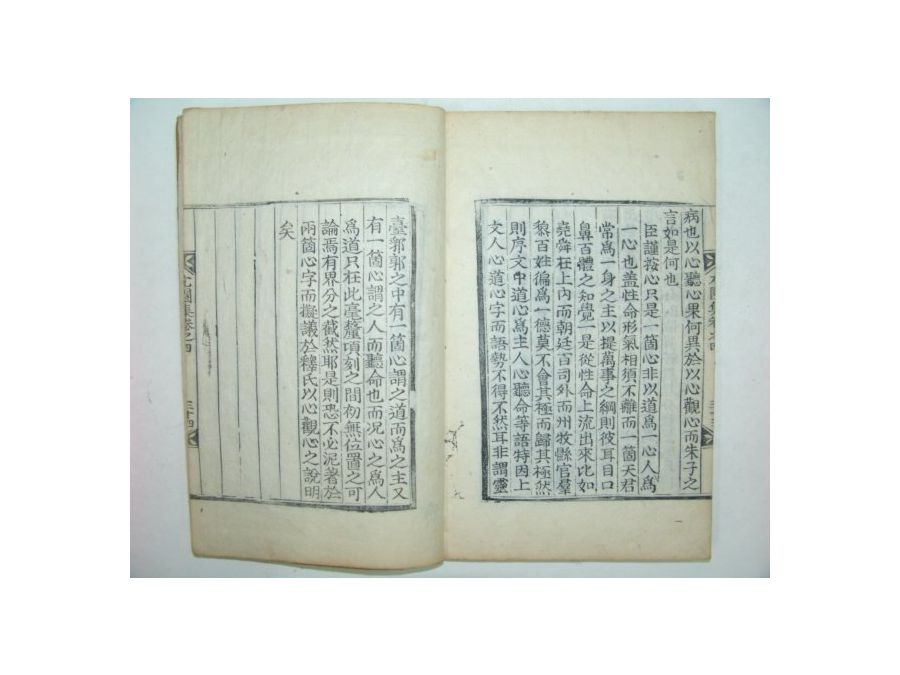 病也以心聽心果何異於以心觀心而朱子之
言如是何也
臣謹按心只是一箇心非以道爲一心人爲
一心也盖性命形氣相須不離而一箇天君
常爲一身之主以提萬事之綱則彼耳目口
鼻百體之知覺一是從性命上流出來比如
堯舜在上內而朝廷百司外而州牧縣官羣
黎百姓徧爲一德莫不會其極而歸其極然
則序文中道心爲主人心聽命等語特因上
文人心道心字而語勢不得不然耳非謂靈
臺郭郭之中有一箇心謂之道而爲之主又
有一箇心謂之人而聽命也而況心之爲人
爲道只在此毫釐頃刻之間初無位置之可
論焉有界分之截然耶是則恐不必泥著於
兩箇心字而擬議於釋氏以心觀心之說明
矣
園集卷之四
三十四